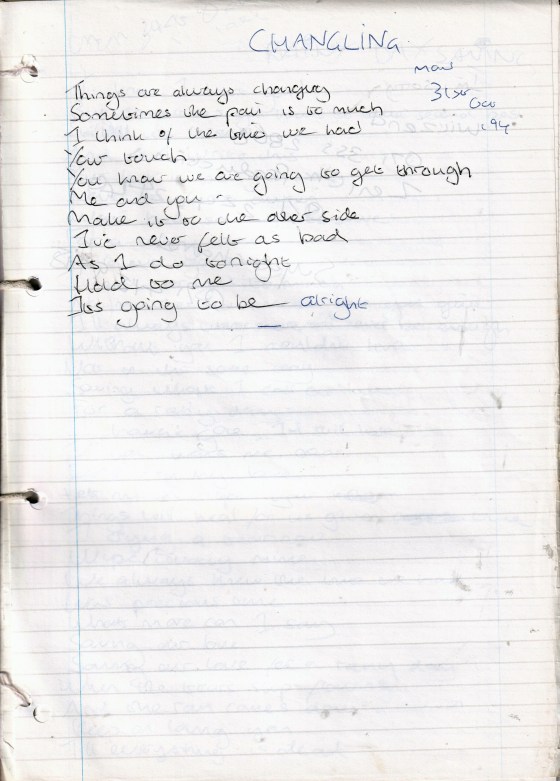 CHANGLING
Mon
31st Oct
94
Things are always changing
Sometimes the pain is to much
I think of the times we had
Your touch
You know we are going to get through
Me and you
Make it to the other side
I've never felt as bad
As I do tonight
Hold to me
Its going to be alright